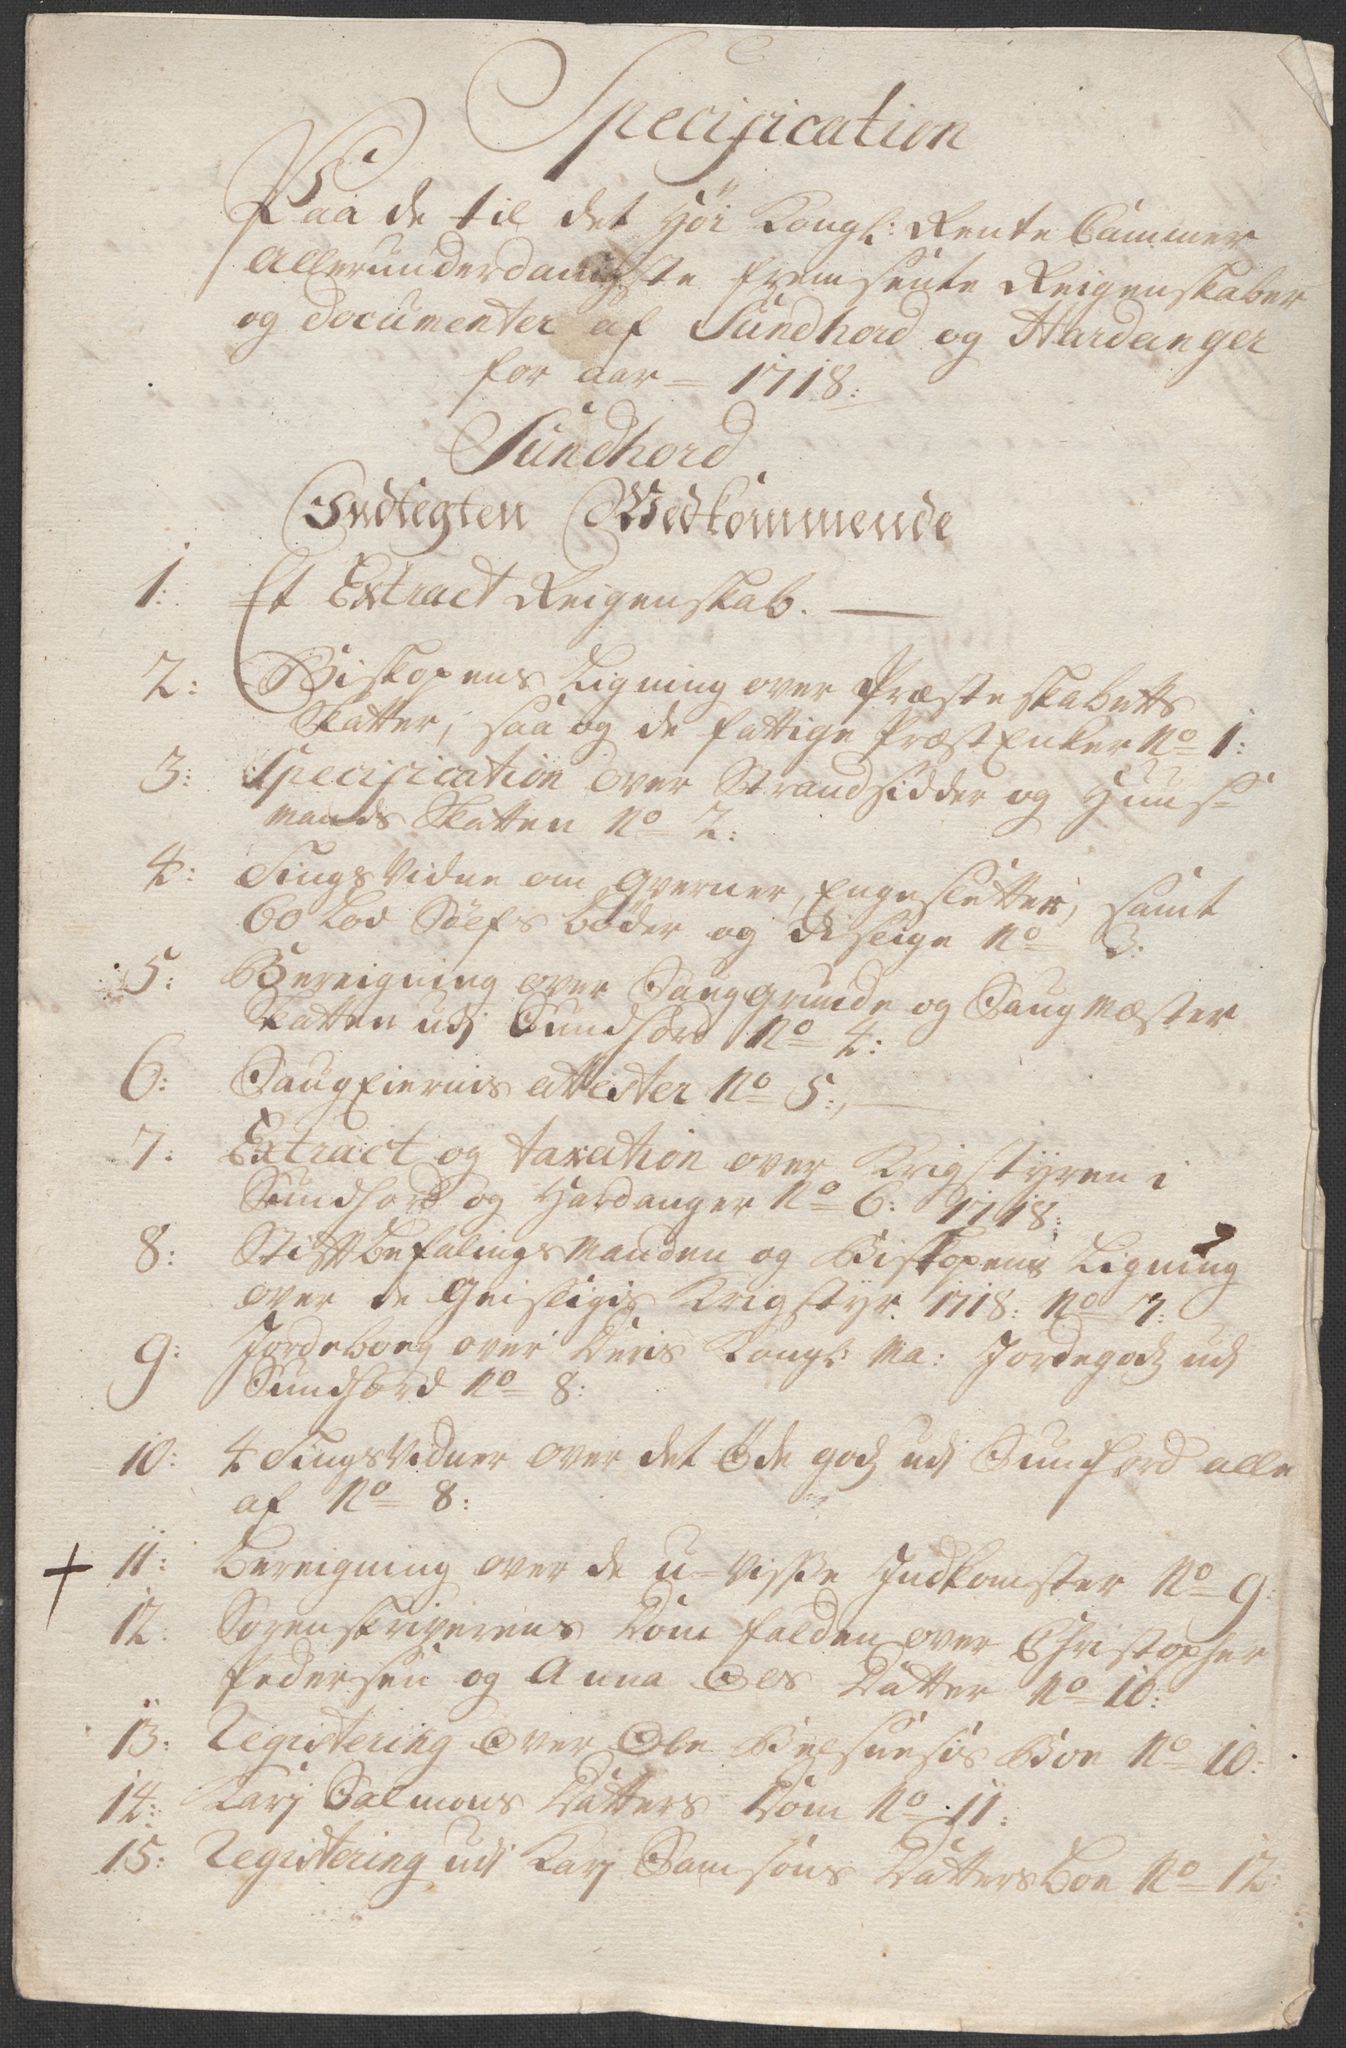 Specification
Paa de til det Höi Kongl: Rente Cammer
Allerunderdanigste fremsente Reigenskaber
og documenter af Sundhord og Hardanger
for aar = 1718:
Sundhord
Indtegten Wedkommende
1: Et Extract Reigenskab.
2: Biskopens Ligning over Præsteskabetts
Skatter, saa og de fattige Præst Enker No 1:
3: Specification over Strandsidder og Huus=
mands Skatten No 2:
4: Tings Vidne om Qverner, Engeslætter, samt
60 Lod Sölfs böder og dislige No 3:
5: Bereigning over Sauggrunde og Saugmæster
Skatten udj Sundhord No 4:
6: Saug Eiernis attester No 5:,
7: Extract og taxation over Krigstyren i
Sundhord og Hardanger No 6: 1718:
8: Stiftbefalingsmanden og Biskopens Ligning
over de Geistligis Krigstyr. 1718: No 7:
9: Jordeboeg over Deris Kongl: Ma: Jordegodz udj
Sundhord No 8:
10: 4 Tings Vidner over det Öde godz udj Sundhord alle
af No 8:
+ 11: Bereigning over de u=visse Indkomster No 9:
12. Sorenskriverens Dom falden over Christopher
Pedersen og Anna Ols Datter No 10:
13: Registering over Ole Boe No 10:
14: Karj Salmons Datters Dom No 11:
15: Registering udj Karj Samsons Datters Boe No 12: